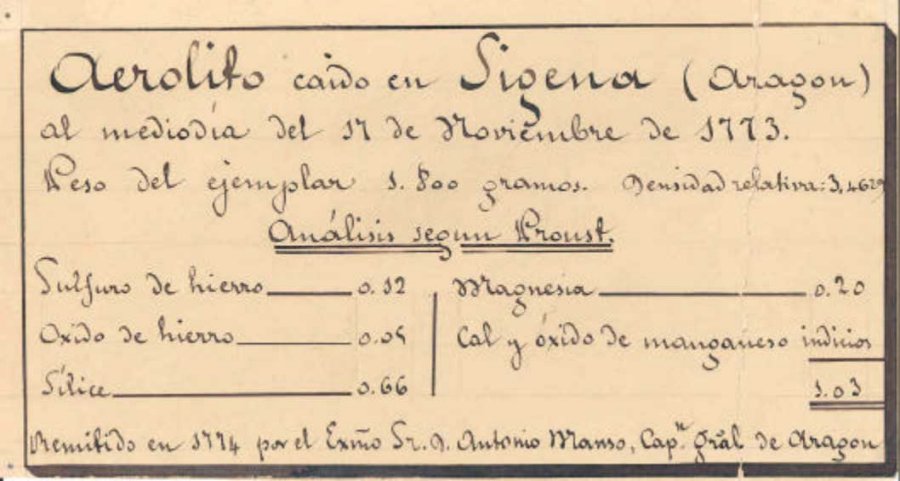 Aerolito caido en Sigena (Aragon)
al mediodía del 17 de Noviembre de 1773.
Peso del ejemplar 1.800 gramos. Densidad relativa: 3,4629
Análisis segun Proust.
Sulfuro de hierro 0.12
Oxido de hierro 0.05
Sílice 0.66
Magnesia 0.20
Cal y óxido de manganeso indicios
1.03
Remitido en 1774 por el Exmo Sr. D. Antonio Manso, Cap.n Gral de Aragon